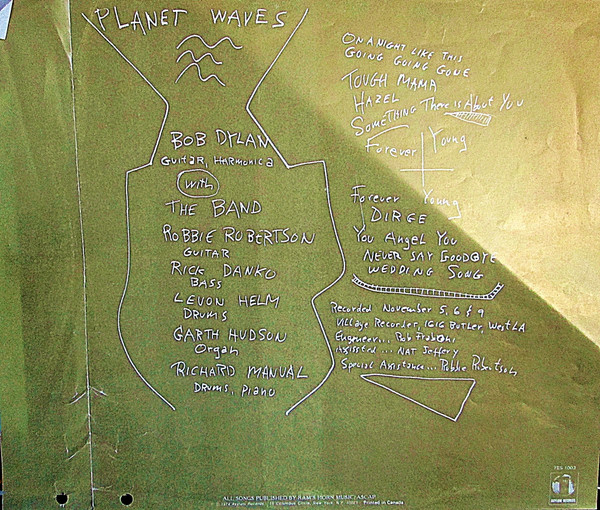 PLANET WAVES
BOB DYLAN
GUITAR, HARMONICA
with
THE BAND
ROBBIE ROBERTSON
GUITAR
RICK DANKO
BASS
LEVON HELM
DRUMS
GARTH HUDSON
Organ
RICHARD MANUAL
DRUMS, PIANO
ON A NIGHT LIKE THIS
GOING GOING GONE
TOUGH MAMA
HAZEL
SOMETHING There is About You
Forever Young
Forever Young
DIRGE
You Angel You
NEVER SAY GOODBYE
WEDDING SONG
Recorded November 5, 6 & 9
Village Recorder, 1616 BUTLER, West LA
Engeneer... Rob Fraboni
Assissted... NAT Jeffery
Special Assistance... Robbie Robertson
TES 1003
ASYLUM RECORDS
ALL SONGS PUBLISHED BY RAM'S HORN MUSIC/ASCAP
© 1974 Asylum Records, 15 Columbus Circle, New York, N.Y. 10023 Printed in Canada